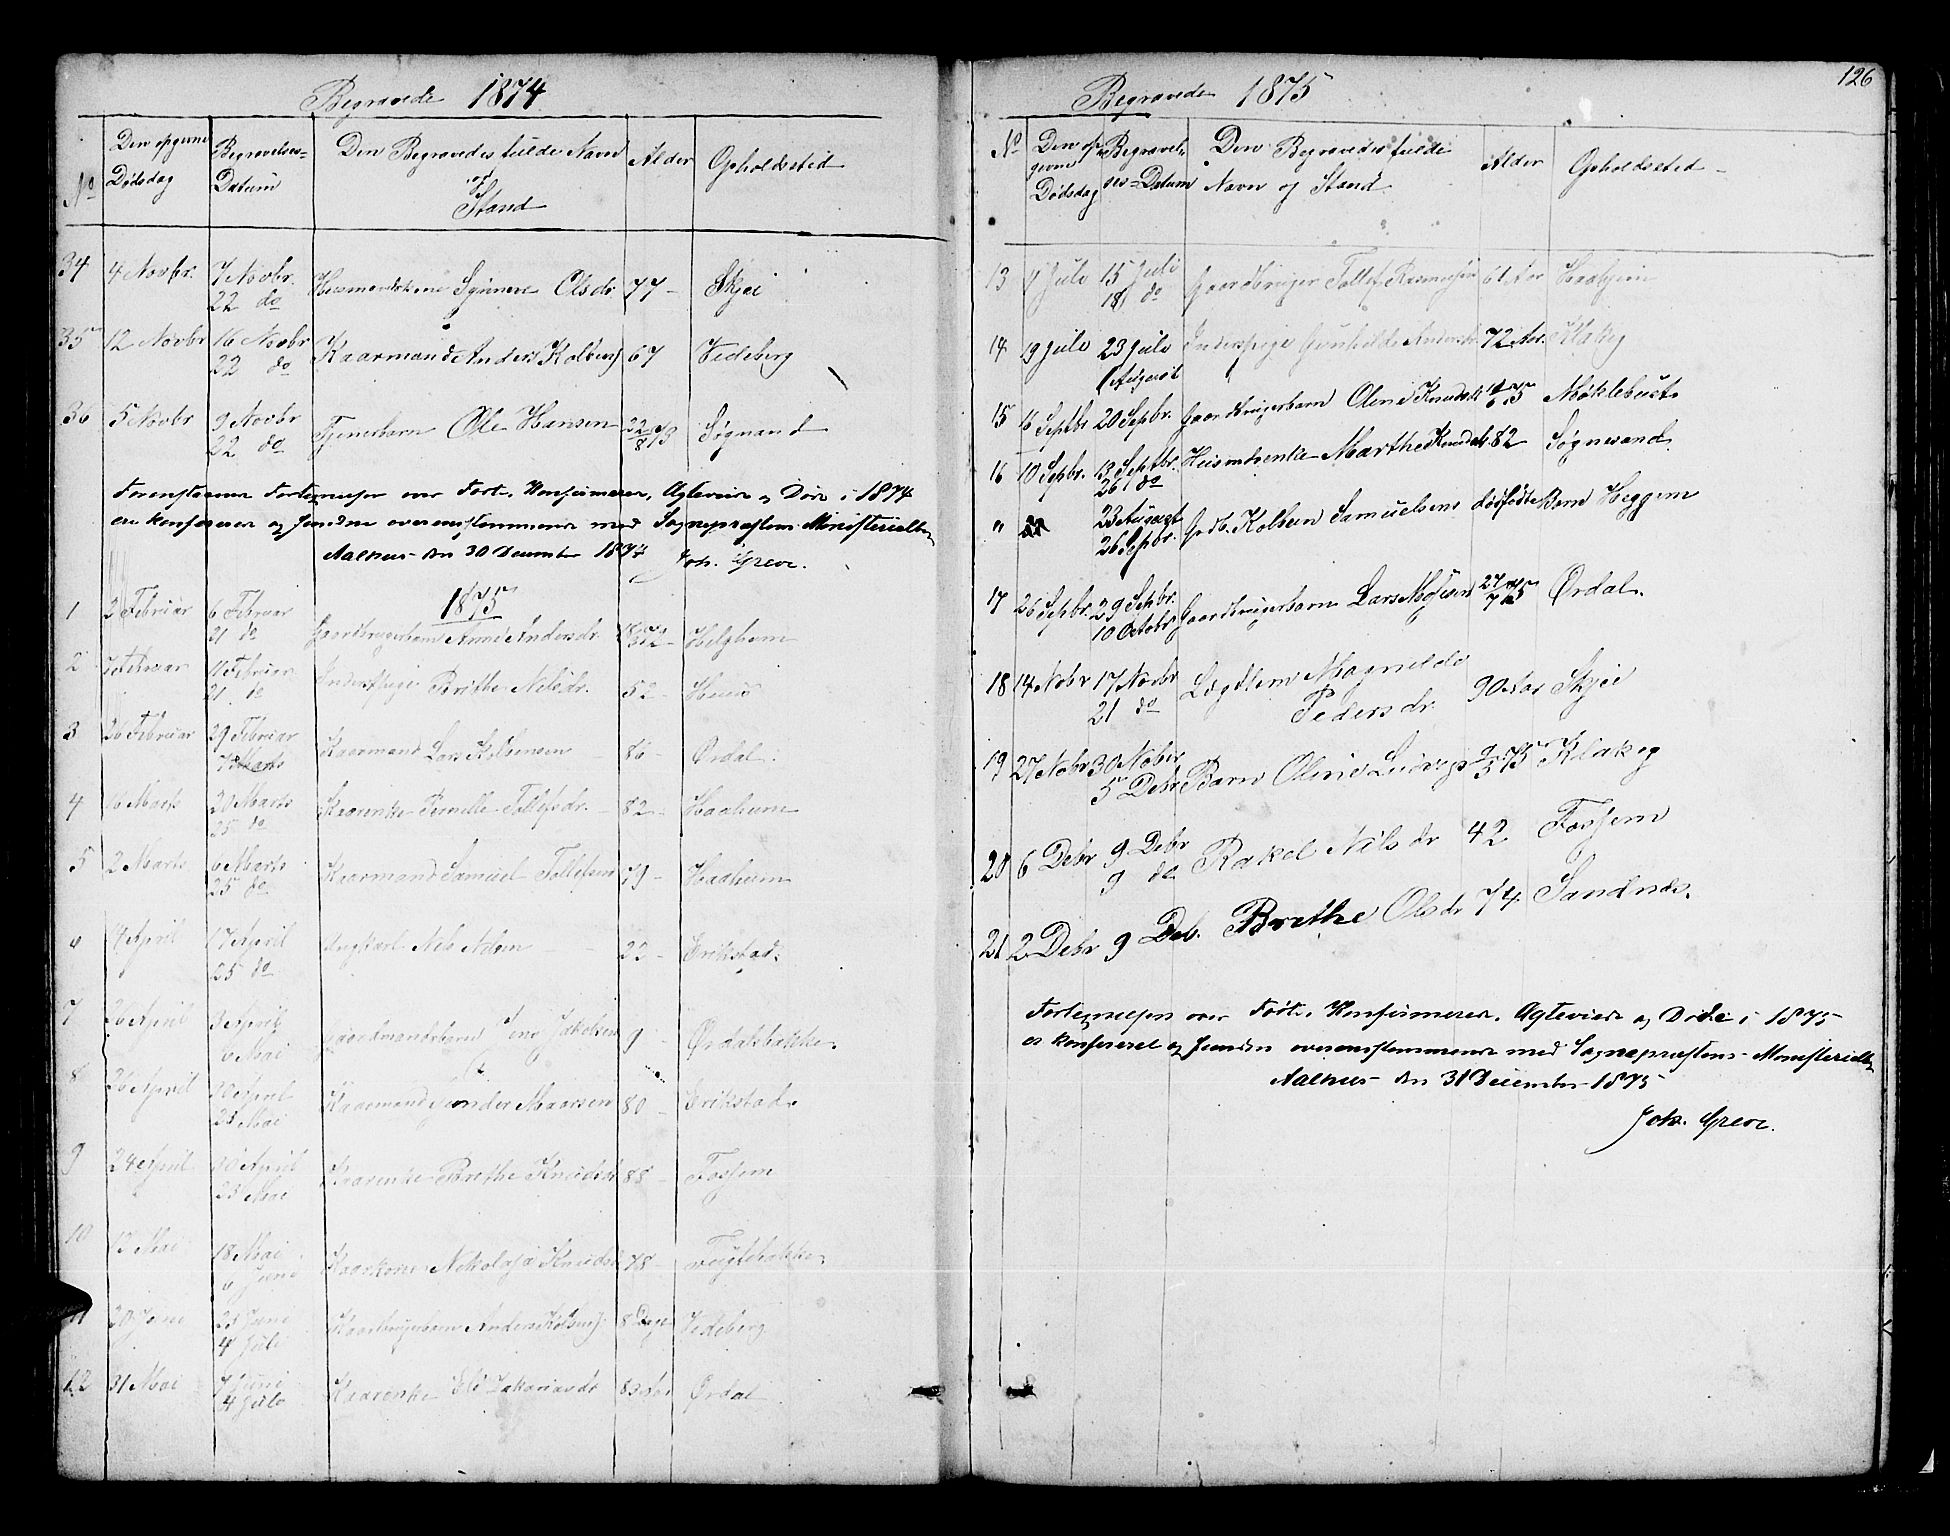 Begravede 1874
No
Den opgivne Dødsdag
Begravelses= Datum
Den Begravedes fulde Navn og Stand
Alder
Opholdssted
34 4 Novbr. 7 Novbr. 22 do Huusmandskone Synneve Olsdr 77 - Skjei
35 12 Novbr 16 Novbr 22 do Kaarmand Anders Kolbens) 67 Vedeberg
36 5 Novbr 9 Novbr 22 do Tjenerbarn Ole Hansen 22/8 73 Søgnand
Forenstaaende Fortegnelser over Født., Konfirmerede, Ægteviede og Døde i 1874
ere konfereret og funden overensstemmende med Sognepræstens Ministerialbog
Aalhus den 30 December 1874 Joh. Greve.
1875
1 2 Februar 6 Februar 21 do Gaardbrugerbarn Anne Andersdr. Helghem
2 7 Februar 11 Februar 21. do Inderstpige Brithe Nelsdr. 52 - Huus
3 26 Februar 29 Februar 7 Marts Kaarmand Lars Kolbensen 86 - Ørdal.
4 16 Marts 20 Marts 25 do Kaarenke Pernille Tollefsdr. 82 - Haaheim
5 2 Marts 6 Marts 25 do Kaarmand Samuel Tollefsen 79 - Haaheim
6 14 April 17 April 25 do Ungkarl Nels Nelsen 22 - Erikstad.
7 26 April 3 April 6 Mai Gaardmandsbarn Jens Jakobsen 9 - Ørdalsbakke.
8 26 April 30 April 23 Mai Kaarmand Gunder Maarsen 80 - Erikstad.
9 24 April 30 April 23 Mai Kaarenke Brithe Knudsd. 88 - Fossem
10 13 Mai 18 Mai 6 Juni Kaarkone Nikolaja Knudsd. 78 -
11 20 Juni 23 Juni 4 Juli Anders Kolbens). 8 Dage Vedeberg
12 31 Mai 7 Juni 4 Juli Kaarenke Eli Zakariasd. 83 Aar Ørdal
126
Begravede 1875
No
Den opgivne Dødsdag
Begravelses=Datum
Den Begravedes fulde Navn og Stand
Alder
Opholdssted -
13 7 Juli 15 Juli 18 do Gaardbruger Tollef Rasmussen 61 Aar Haahjem
14 19 Juli 23 Juli 1 August Inderstpige Gunhilde Andersdr. 72 Aar. Klakeg
15 16 Septbr 20 Sepbr. Gaardbrugerbarn Oline Knudsd. 75 Møklebust.
16 10 Sepbr. 13 Septbr. 26 do Huusmdsenke Marthe Knudsd. 82 Søgnesand.
" 23 August 26 Sepbr. Grdb. Kolben Samuelsens dødfødte Barn Heggem
17 26 Sepbr. 29 Sepbr. 10 Octobr Gaardbrugerbarn Lars Mosesen 27/7 75 Ørdal.
18 14 Nobr 17 Novbr 21 do Lægdlem Magnilde Pedersdr. 90 Aar Skjei
19 27 Nobr 30 Nobr 5 Debr Barn Oline Ludvigs 9/5 75 Klakeg
20 6 Debr 9 Debr 9 do Rakel Nilsdr 42 Fossem
21 2 Debr 9 Deb. Brithe Olsdr 74 Sandnes.
Fortegnelsen over Født., Konfirmerede, Ægteviede og Døde i 1875
er konfereret og funden overensstemmende med Sognepræstens Ministerialbog
Aalhus den 31 December 1875
Joh. Greve.